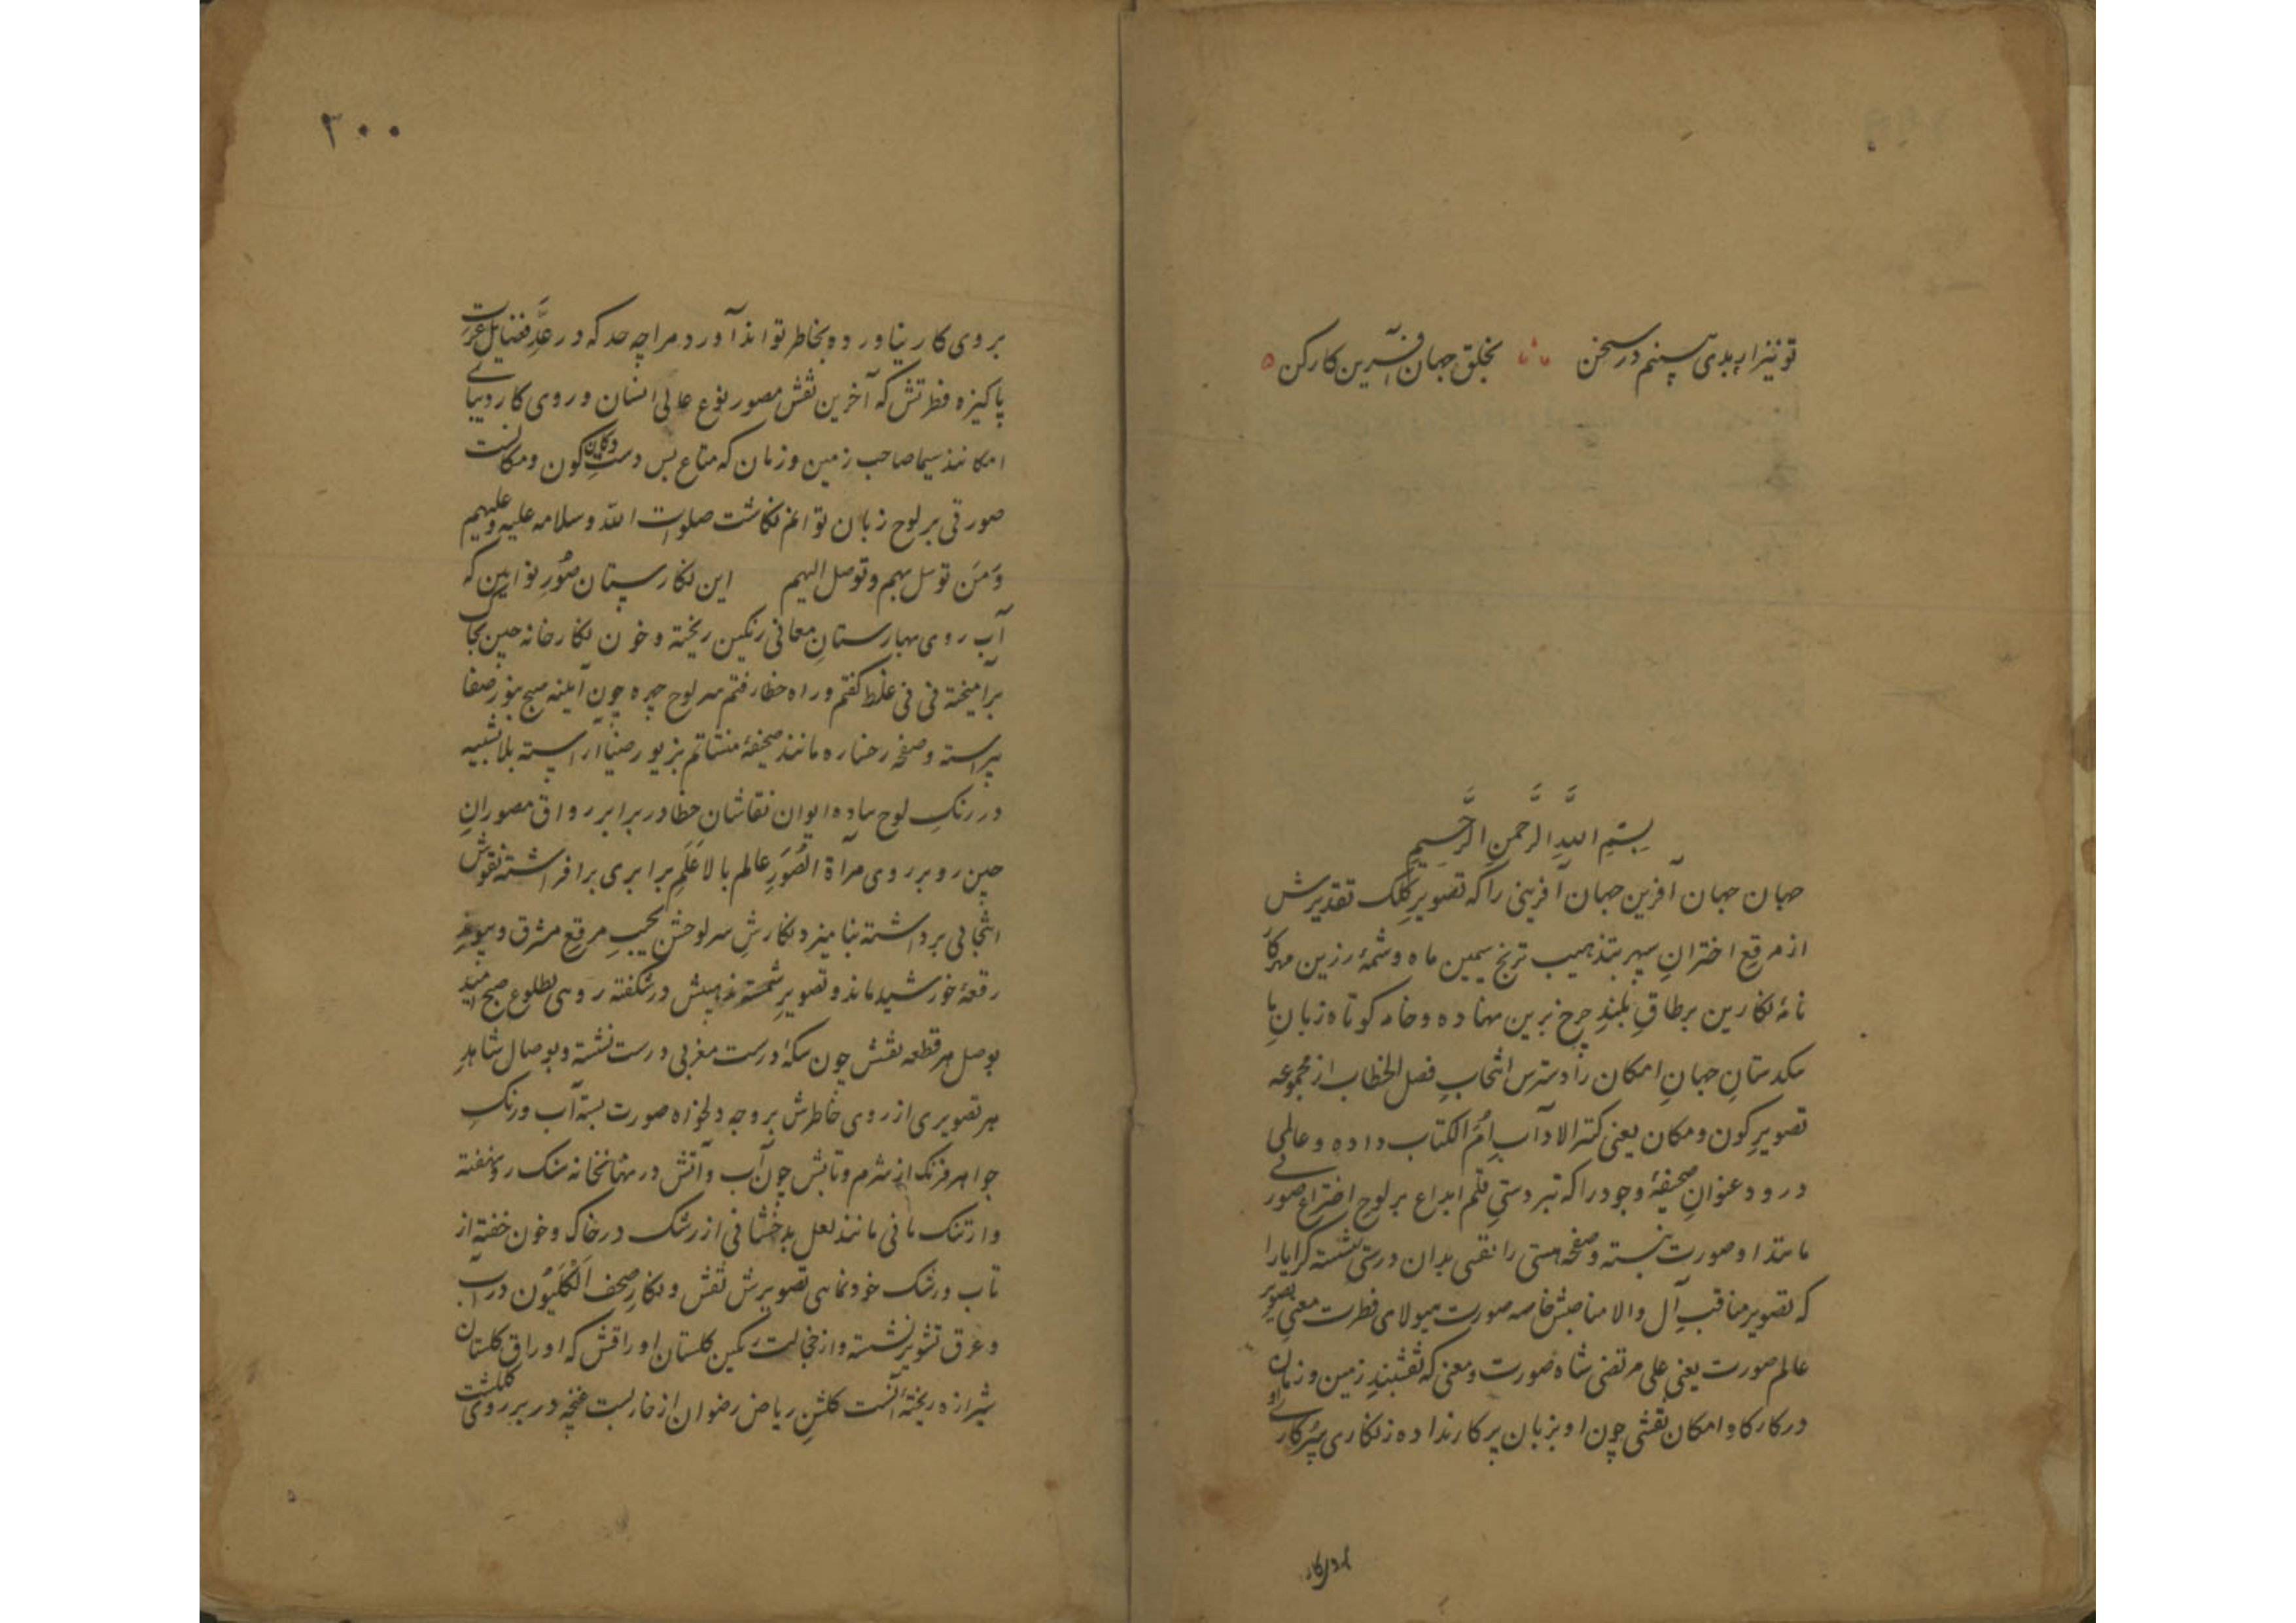 تو نیز ار بدی بینیم در سخن بخلق جهان آفرین کار کن
بسم الله الرحمن الرحیم
جهان جهان آفرین جهان آفرینی را که تصویر کلک تقدیرش
از مرقع اختران سپهر بتذهیب ترنج سیمین ماه و شمسهٔ زرین مهر کار
نامهٔ نکارین بر طاق بلند چرخ برین نهاده و خامه کوتاه زبان با
سکدستان جهان امکان را دسترس انتخاب فصل الخطاب از مجموعه
تصویر کون و مکان یعنی کنز الاداب ام الکتاب داده و عالمی
درود عنوان صحیفهٔ وجود را که تبردستی قلم ابداع بر لوح اختراع صورتی
مانند او صورت نبسته و صفحه هستی را نقشی بدان درستی ننشسته کرا یارا
که تصویر مناقب آل والا مناصبش خاصه صورت هیولای فطرت معنی تصویر
عالم صورت یعنی علی مرتضی شاه صورت و معنی که نقشبند زمین و زمان
در کارکاه امکان نقشی چون او بزبان پرکار نداده و نکاری پرکاری او
بروی کار
۳۰۰
بروی کار نیاورده بخاطر تواند آورد مرا چه حد که در عد فضایل عترت
پاکیزه فطرتش که آخرین نقش مصور نوع عالی انسان و روی کار دیبای
امکانند سیما صاحب زمین و زمان که متاع بس دست دکان کون و مکانست
صورتی بر لوح زبان توانم نکاشت صلوات الله و سلامه علیه و علیهم
و من توسل بهم و توصل الیهم این نکارستان صور نوایین که
آب روی بهارستان معانی رنکین ریخته و خون نکارخانه چین بخاک
برآمیخته نی نی غلط کفتم و راه خطا رفتم سر لوح چهره چون آینه صبح بنور صفا
پیراسته و صفحه رخساره مانند صحیفهٔ منشاتم بزیور ضیا آراسته بلا تشبیه
در رنک لوح ساده ایوان نقاشان خطا در برابر رواق مصوران
چین رو بروی مرآة الصور عالم بالا علم برابری برافراشته نقوش
انتخابی برداشته بنامیزد نکارش سر لوحش بجیب مرقع مشرق و پیوند
رقعهٔ خورشید ماند و تصویر شمسهٔ تذهیبش در شکفته رویی بطلوع صبح امید
بوصل هر قطعه نقشش چون سکهٔ درست مغربی درست نشسته و بوصال شاهد
هر تصویری از روی خاطرش بر وجه دلخواه صورت بسته آب و رنک
جواهر فرنک از شرم و تابش چون آب و آتش در نهانخانه سنک رو نهفته
و ارتنک مانی مانند لعل بدخشانی از رشک در خاک و خون خفته از
تاب و رشک خودنمایی تصویرش نقش و نکار صحف انکلیون در آب
و عرق تشویر نشسته و از خجالت رنکین کلستان اوراقش که اوراق کلستان
شیرازه ریختهٔ آنست کلشن ریاض رضوان از خاربست غنچه در بر روی کلکشت